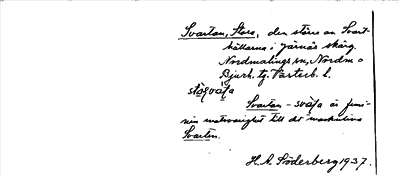 Svarten, Stora, den större av Svart-
hällarna i Järnäs skärg.
Nordmalings sn, Nordm o
Bjurh. tg Västerb. l.
Svarten - svåta är femi-
nin motsvarighet till det maskulina
Svarten.
H. A. Söderberg 1937.